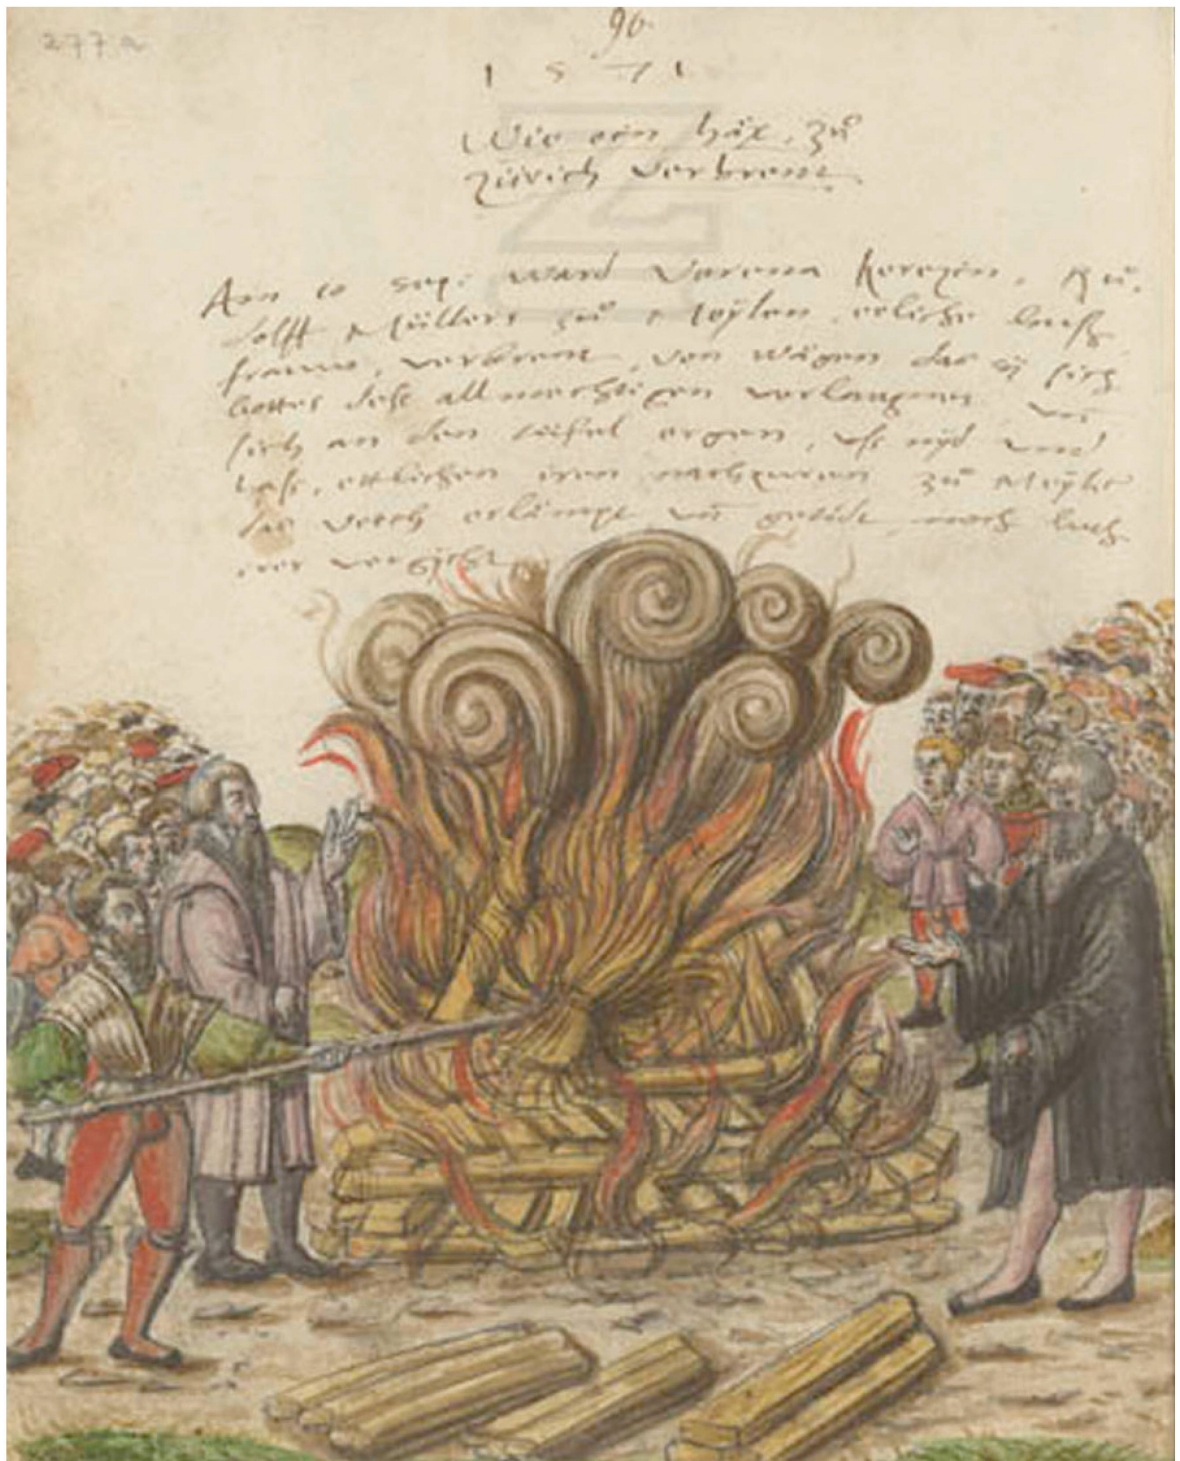 277a
96
1571
Wie ein häx, zů
Zürich verbrent.
Am 10 sep: ward Verena Kerezin, Rů,
dolff Müllers zů Meylen eeliche huss
frauw, verbrent, von wägen das sy sich
Gottes dess allmechtigen verlaugnet, vñ
sich an den tüfel ergen, uss nyd und
hass, ettlichen iren nachpuren zů Meylen
das vech erlämpt vñ getödt, nach luth
irer vergicht.